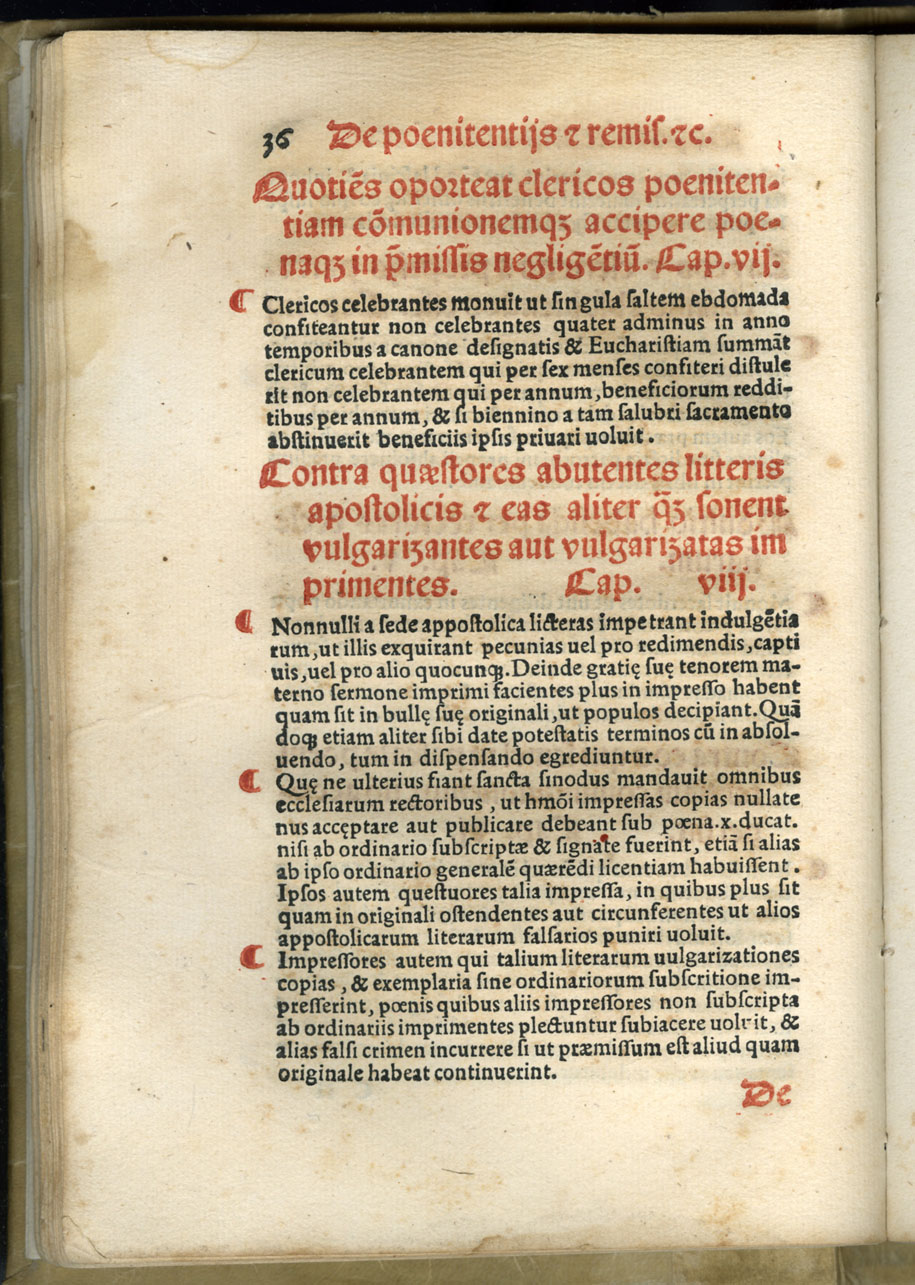 36 De poenitentijs ⁊ remiſ. ⁊c.
Quotiēs oporteat clericos poeniten-
tiam cōmunionemqꝫ accipere poe-
naqꝫ in p̄miſſis negligētiū. Cap. vij.
¶ Clericos celebrantes monuit ut ſingula ſaltem ebdomada
confiteantur non celebrantes quater adminus in anno
temporibus a canone deſignatis & Euchariſtiam ſummāt
clericum celebrantem qui per ſex menſes confiteri diſtule
rit non celebrantem qui per annum, beneficiorum reddi-
tibus per annum, & ſi biennino a tam ſalubri ſacramento
abſtinuerit beneficiis ipſis priuari uoluit.
Contra quæſtores abutentes litteris
apoſtolicis ⁊ eas aliter q̄ꝫ ſonent
vulgariꝫantes aut vulgariꝫatas im
primentes. Cap. viij.
¶ Nonnulli a ſede appoſtolica licteras impetrant indulgētia
rum, ut illis exquirant pecunias uel pro redimendis, capti
uis, uel pro alio quocunqꝫ. Deinde gratię ſuę tenorem ma-
terno ſermone imprimi facientes plus in impreſſo habent
quam ſit in bullę ſuę originali, ut populos decipiant. Quā
doqꝫ etiam aliter ſibi date poteſtatis terminos cū in abſol-
uendo, tum in diſpenſando egrediuntur.
¶ Quę ne ulterius fiant ſancta ſinodus mandauit omnibus
eccleſiarum rectoribus, ut hmōi impreſſas copias nullate
nus accęptare aut publicare debeant ſub pœna. x. ducat.
niſi ab ordinario ſubſcriptæ & ſignate fuerint, etiā ſi alias
ab ipſo ordinario generalē quærēdi licentiam habuiſſent.
Ipſos autem queſtuores talia impreſſa, in quibus plus ſit
quam in originali oſtendentes aut circunferentes ut alios
appoſtolicarum literarum falſarios puniri uoluit.
¶ Impreſſores autem qui talium literarum uulgarizationes
copias, & exemplaria ſine ordinariorum ſubſcritione im-
preſſerint, pœnis quibus aliis impreſſores non ſubſcripta
ab ordinariis imprimentes plectuntur ſubiacere uoluit, &
alias falſi crimen incurrere ſi ut præmiſſum eſt aliud quam
originale habeat continuerint.
De